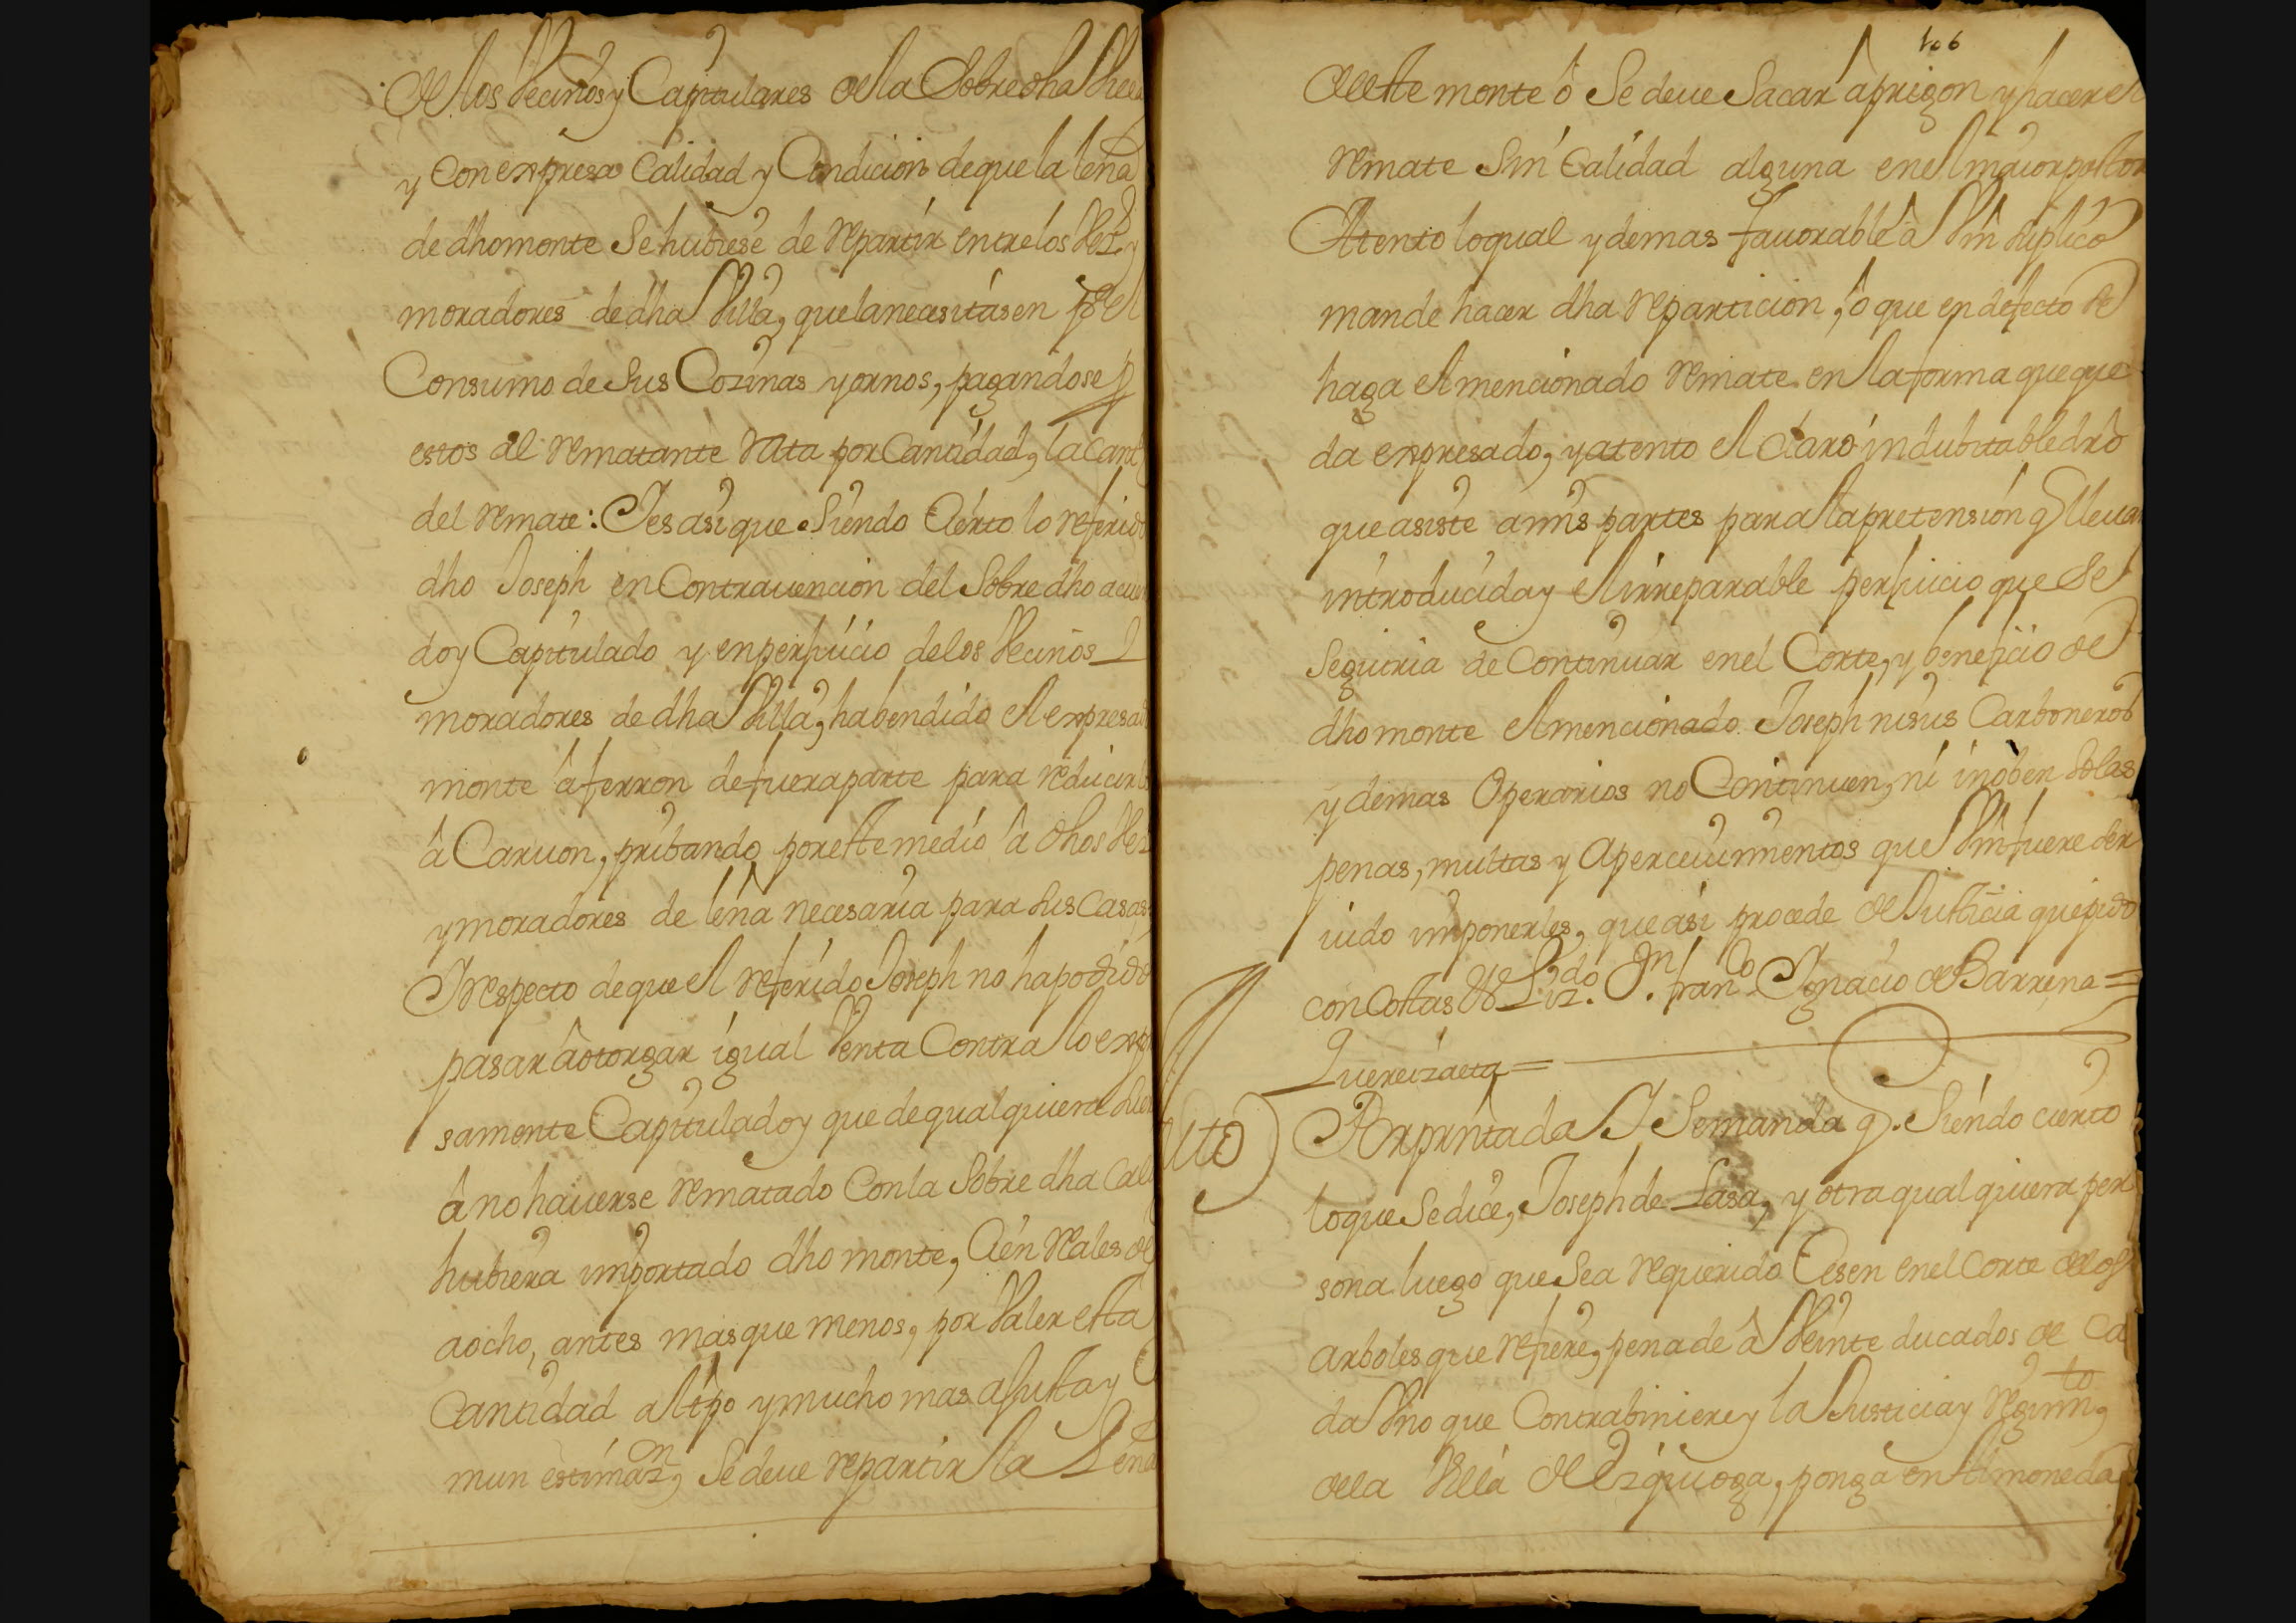 de los Vecinos y Capitulares de la Sobre dha Villa
y con expresa Calidad y Condicion de que la leña
de dho monte Se hubiese de repartir entre los Vez.s y
moradores de dha Villa, que la necesitasen p.a el
Consumo de Sus Cozinas y ornos, pagandose p.r
estos al rematante rata por Cantidad, la Cant
del remate: I es asi que Siendo Cierto lo referido
dho Joseph en Contrauencion del Sobre dho acuer
do y Capitulado y en perjuicio de los Vecinos I
moradores de dha Villa, ha bendido el expresado
monte â ferron de fuera parte para reducirlo
â Caruon, pribando por este medio â dhos Vez
y moradores de leña necesaria para sus Casas,
I respecto de que el referido Joseph no ha podido
pasar â otorgar igual Venta Contra lo expre
samente Capitulado y que de qualquiera Suer
â no hauerse rematado Con la Sobre dha Cali
hubiera importado dho monte, Cien Reales de
a ocho, antes mas que menos, por Valer esta
Cantidad al tpo y mucho mas a justa y Co
mun estimaz.n, Se deue repartir la Leña
106
de este monte ô Se deue Sacar â prigon y hacer el
remate Sin Calidad alguna en el maior postor
Atento lo qual y demas fauorable â Vm Suplico
mande hacer dha reparticion, ô que en defecto Se
haga el mencionado remate en la forma que que
da expresado, y atento el Claro indubitable drõ
que asiste a mis partes para la pretension q lleuan
introducida y el irreparable perjuicio que Se
Seguiria de Continuar en el Corte, y beneficio de
dho monte el mencionado Joseph ni sus Carboneros
y demas Operarios no Continuen, ni inoben So las
penas, multas y Aperceuimientos que Vm fuere Ser
uido imponerles, que asi procede de Justicia que pido
con Costas &.a Liz.do D.n Fran.co Ignacio de Barrena =
Quereizaeta =
Auto
Por presentada I Se manda q. Siendo cierto
lo que Se dice, Joseph de Lasa, y otra qual quiera per
sona luego que Sea requerido Cesen en el Corte de los
arboles que refiere, pena de â Veinte ducados de Ca
da Vno que Contrabiniere y la Justicia y Regim.to,
de la Villa de Ezquioga, ponga en Almoneda